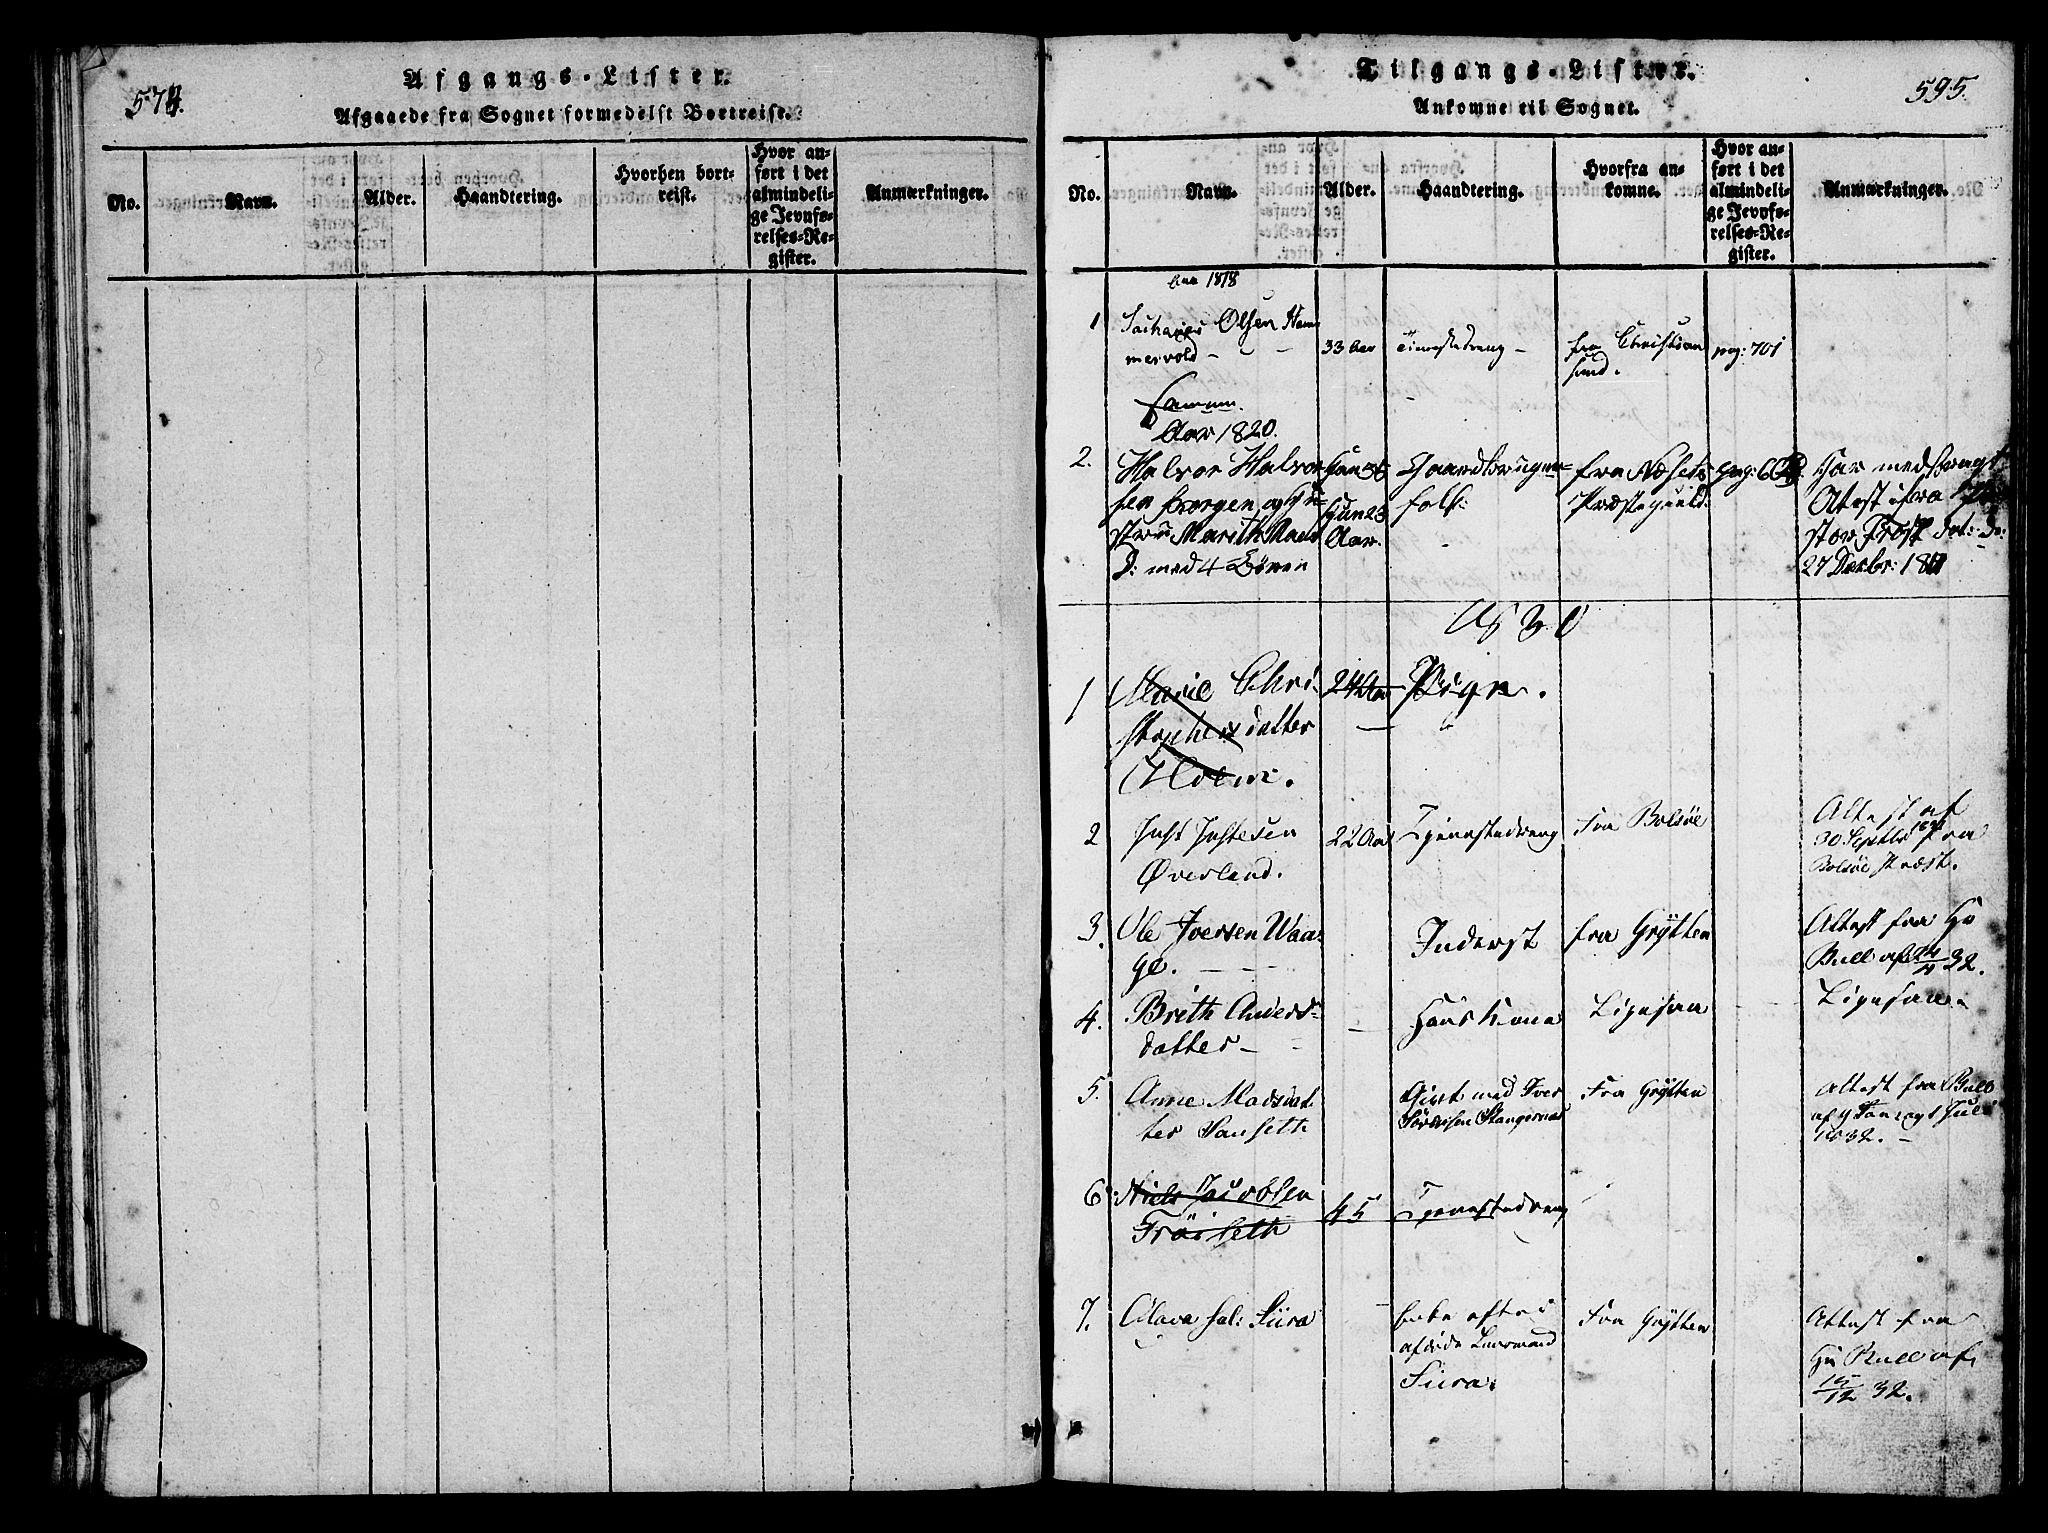 574.
Afgangs-Lister.
Afgaaede fra Sognet formedelst Bortreise.
No.
Navn.
Alder.
Haandtering.
Hvorhen bort-
reist.
Hvor an-
ført i det
almindeli-
ge Jevnfø-
relses-Re-
gister.
Anmærkninger.
Tilgangs-Lister.
595.
Ankomne til Sognet.
No.
Navn.
Alder.
Haandtering.
Hvorfra an-
komne.
Hvor an-
ført i det
almindeli-
ge Jevnfø-
relses-Re-
gister.
Anmærkninger.
1818
1 Zacharias Olsen Ham
mervold - - 33 Aar Tienestedreng - fra Christian
sund. pag: 701
Aar 1820.
2. Halvor Halvor
sen Horgen og Hu-
strue Marith
D: med 4 Børn
Hun 23
Aar.
Gaardbruger-
folk:
fra Næsets
Præstegield.
Har medbragt
Atest ifra Pa
stor Frost dat: d:
27 Decbr: 18
1830
1 Marie Chri-
stophersdatter
Holm.
24 Aar Pige.
2 Just Justesen
Øverland.
22 Aar Tjenestedreng Fra Bolsøe
Attest af
30 Septbr fra
Bolsøe Præst.
3. Ole Iversen Waa-
ge. - - -
Inderst fra Grytten
Attest fra Hr
Bull af 32.
4. Brith Anders-
datter -
Huuskone Ligesaa Ligesaa.
5. Anne Madsdat
ter Sanseth
Givt med Iver
Sörensen Stangernes
Fra Grytten
Attest fra Bull
Juli
1832. -
6. Niels Jacobsen
Fröiseth
45 Tjenestedreng
7. Olava sal: Siira
Enke efter
afdøde Lensmand
Siira.
Fra Grytten
Attest fra
Hr Bull af
15/12 32.